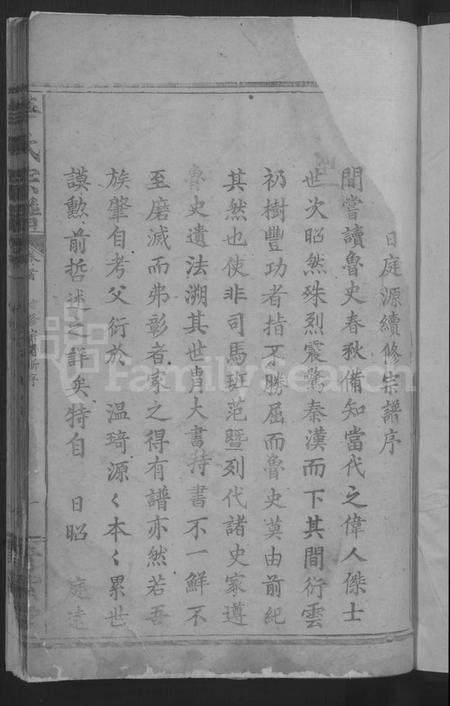 日庭源續修宗譜序
間嘗讀魯史春秋備知當代之偉人傑士
世次昭然殊烈震驚秦漢而下其間衍雲
礽樹豐功者指不勝屈而魯史莫由前紀
其然也使非司馬班范暨列代諸史家遵
魯史遺法溯其世胄大書持書不一鮮不
至磨滅而弗彰者家之得有譜亦然若吾
族肇自考父衍於 温琦源〱本〱累世
謨勲前哲述之詳矣特自 日昭 庭
氏宗譜
FamilySearch